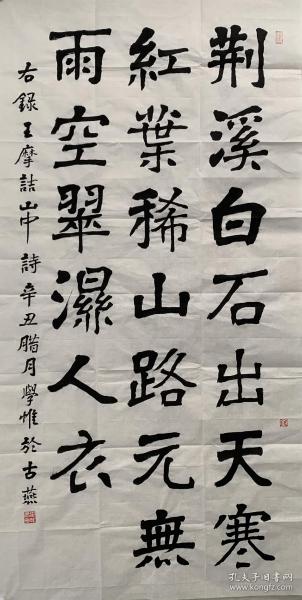 荆溪白石出天寒
紅葉稀山路元無
雨空翠濕人衣
右録王摩詰山中詩辛丑腊月學惟於古燕
孔夫子旧书网